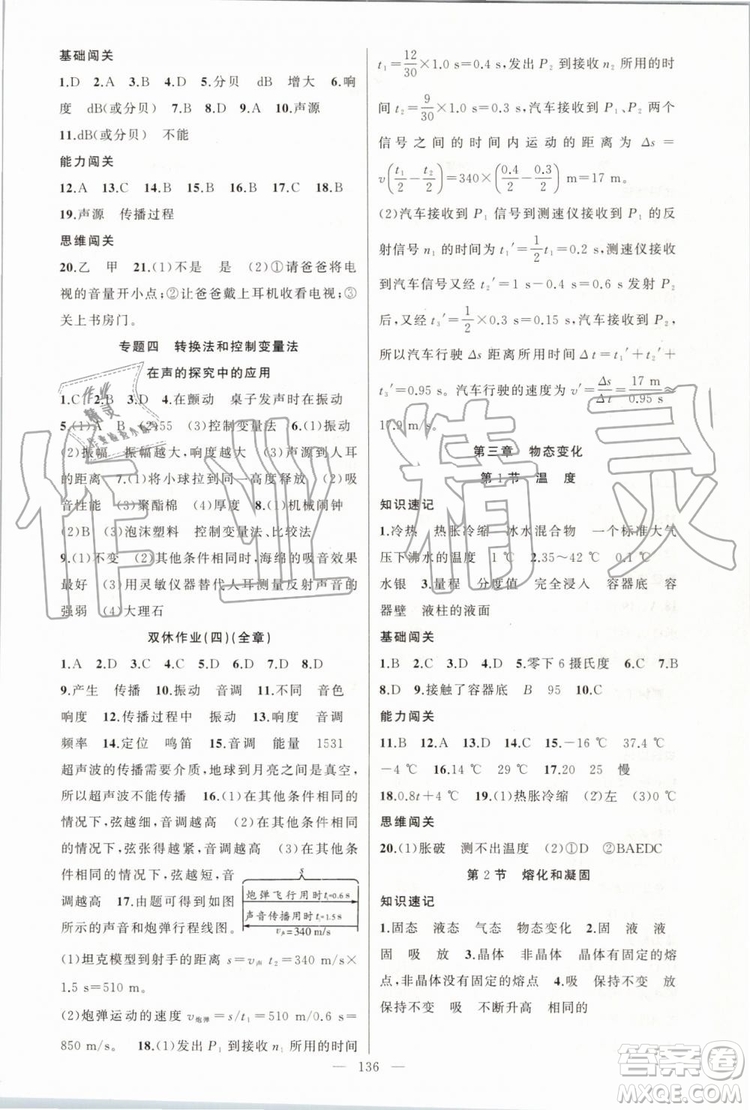 基础闯关
1.D 2.A 3.B 4.D 5.分贝 dB 增大 6.响
度 dB(或分贝) 7.B 8.B 9.A 10.声源
11.dB(或分贝) 不能
能力闯关
12.A 13.C 14.B 15.B 16.B 17.D 18.B
19.声源 传播过程
思维闯关
20.乙 甲 21.(1)不是 是 (2)①请爸爸将电
视的音量开小点;②让爸爸戴上耳机收看电视;③
关上书房门。
专题四 转换法和控制变量法
在声的探究中的应用
1.C 2.B 3.D 4.在颤动 桌子发声时在振动
5.(1) (2)55 (3)控制变量法 6.(1)振动
(2)振幅 振幅越大,响度越大 (3)声源到人耳
的距离 7.(1)将小球拉到同一高度释放 (2)吸
音性能 (3)聚酯棉 (4)厚度 8.(1)机械闹钟
(2)B (3)泡沫塑料 控制变量法、比较法
9.(1)不变 (2)其他条件相同时,海绵的吸音效果
最好 (3)用灵敏仪器替代人耳测量反射声音的
强弱 (4)大理石
双休作业(四)(全章)
1.A 2.D 3.B 4.C 5.D 6.D 7.D 8.D
9.产生 传播 10.振动 音调 11.不同 音色
响度 12.传播过程中 振动 13.振动 音调
频率 14.定位 鸣笛 15.音调 能量 1531
超声波的传播需要介质,地球到月亮之间是真空,
所以超声波不能传播 16.(1)在其他条件相同的
情况下,弦越细,音调越高 (2)在其他条件相同的
情况下,弦张得越紧,音调越高 (3)在其他条件
相同的情况下,弦越短,
音调越高 17.由题可得如图
所示的声音和炮弹行程线图。
s
炮弹飞行用时t₁=0.6 s
声音传播用时t₂=1.5 s
v声=340 m/s
(1)坦克模型到射手的距离 s=v声 t₂=340 m/s×
1.5 s=510 m。
(2)炮弹运动的速度 v炮弹=s/t₁=510 m/0.6 s=
850 m/s。 18.(1)发出 P₁ 到接收 n₁ 所用的时间
t₁=12/30×1.0 s=0.4 s,发出 P₂ 到接收 n₂ 所用的时
间 t₂=9/30×1.0 s=0.3 s,汽车接收到 P₁、P₂ 两个
信号之间的时间内运动的距离为 Δs=
v(t₁/2-t₂/2)=340×(0.4/2-0.3/2) m=17 m。
(2)汽车接收到 P₁ 信号到测速仪接收到 P₁ 的反
射信号 n₁ 的时间是 t₁′=1/2t₁=0.2 s,测速仪接收到
汽车信号又经 t₂′=1 s-0.4 s=0.6 s 发射 P₂
后,汽车接收到信号又经 t₃′=1/2t₂=0.15 s,
所以汽车行驶 Δs 的距离的时间为 t=t₁′+t₂′+
t₃′=0.95 s。汽车行驶的速度为 v′=Δs/t=17 m/0.95 s≈
17.9 m/s。
第三章 物态变化
第1节 温度
知识速记
1.冷热 热胀冷缩 冰水混合物 一个标准大气
压下沸水的温度 1℃ 2.35~42℃ 0.1℃
水银 3.量程 分度值 完全浸入 容器底 容
器壁 液柱的液面
基础闯关
1.B 2.C 3.A 4.D 5.零下6摄氏度 6.C 7.B
8.D 9.接触了容器底 B 95 10.C
能力闯关
11.B 12.A 13.D 14.D 15.-16℃ 37.4℃
-4℃ 16.2℃ 17.20 25 慢
18.0.8t+4℃ 19.(1)热胀冷缩 (2)1 (3)0℃
思维闯关
20.(1)胀破 测不出温度 (2)BAEDC
第2节 熔化和凝固
知识速记
1.固态 液态 气态 物态变化 2.固 液 液
固 吸 放 3.晶体 非晶体 晶体有固定的熔
点,非晶体没有固定的熔点 4.吸 保持不变 放
保持不变 吸 不断升高 相同的
— 136 —
作业精灵
精灵
答案卷